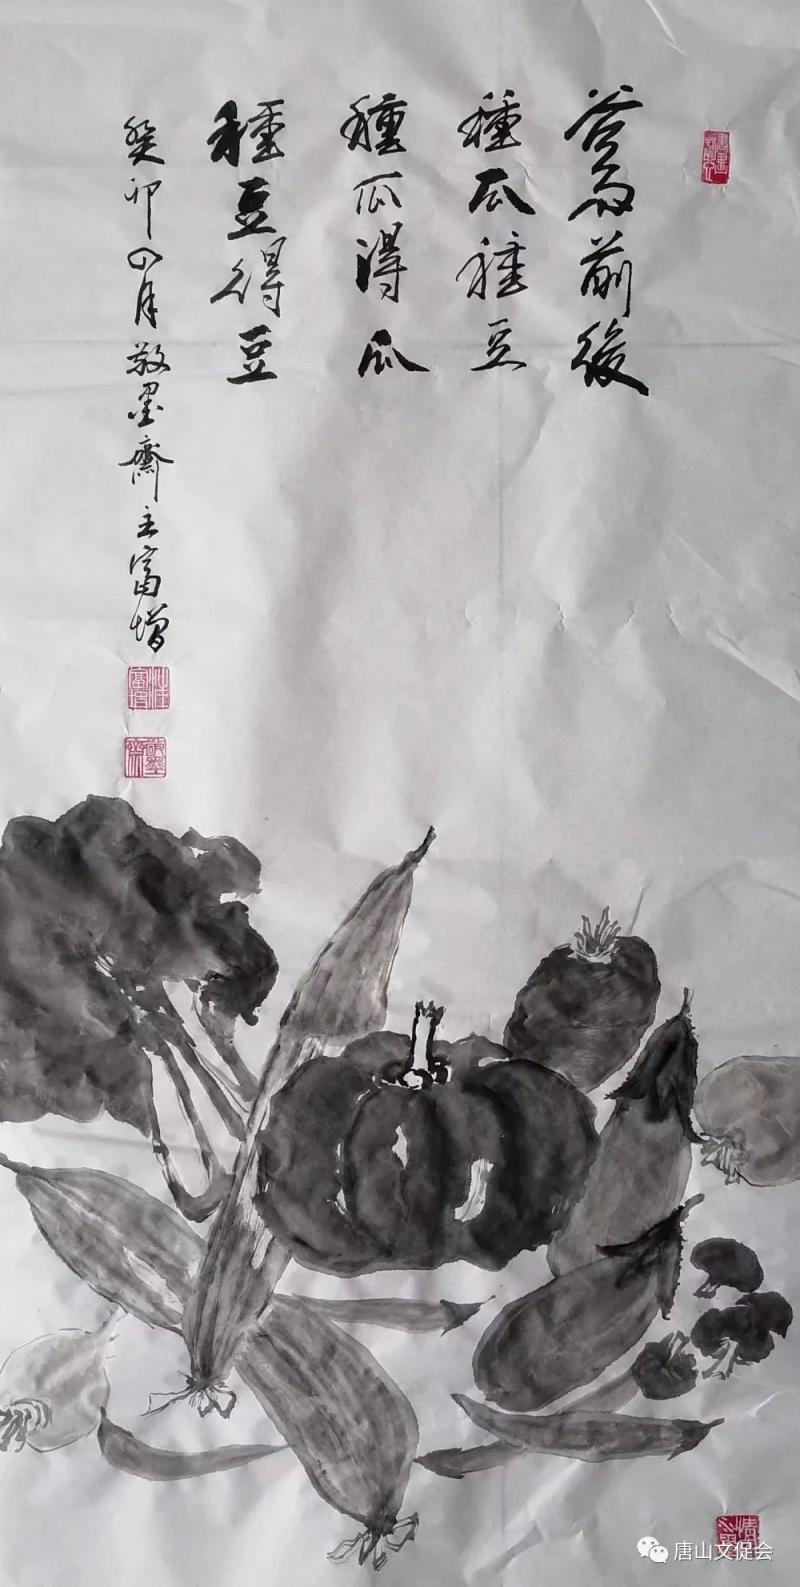 谷雨前後
種瓜種豆
種瓜得瓜
種豆得豆
癸卯四月敬墨齋主富增
唐山文促会